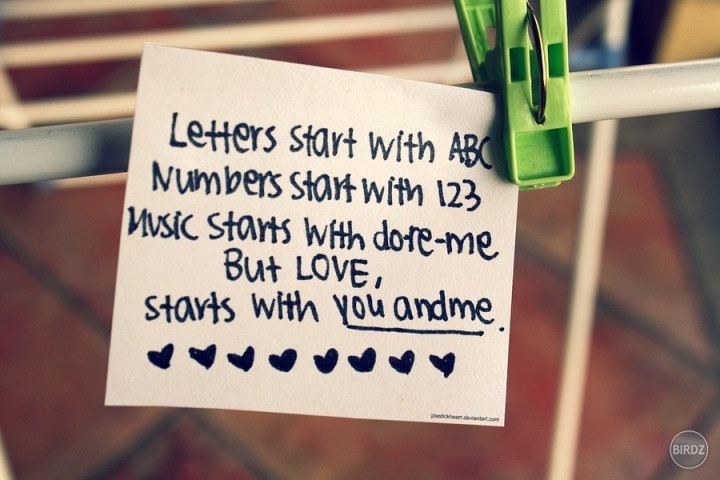 Letters start with ABC
Numbers start with 123
Music starts with do-re-me
But LOVE,
starts with you and me.
plastickheart.deviantart.com
BIRDZ